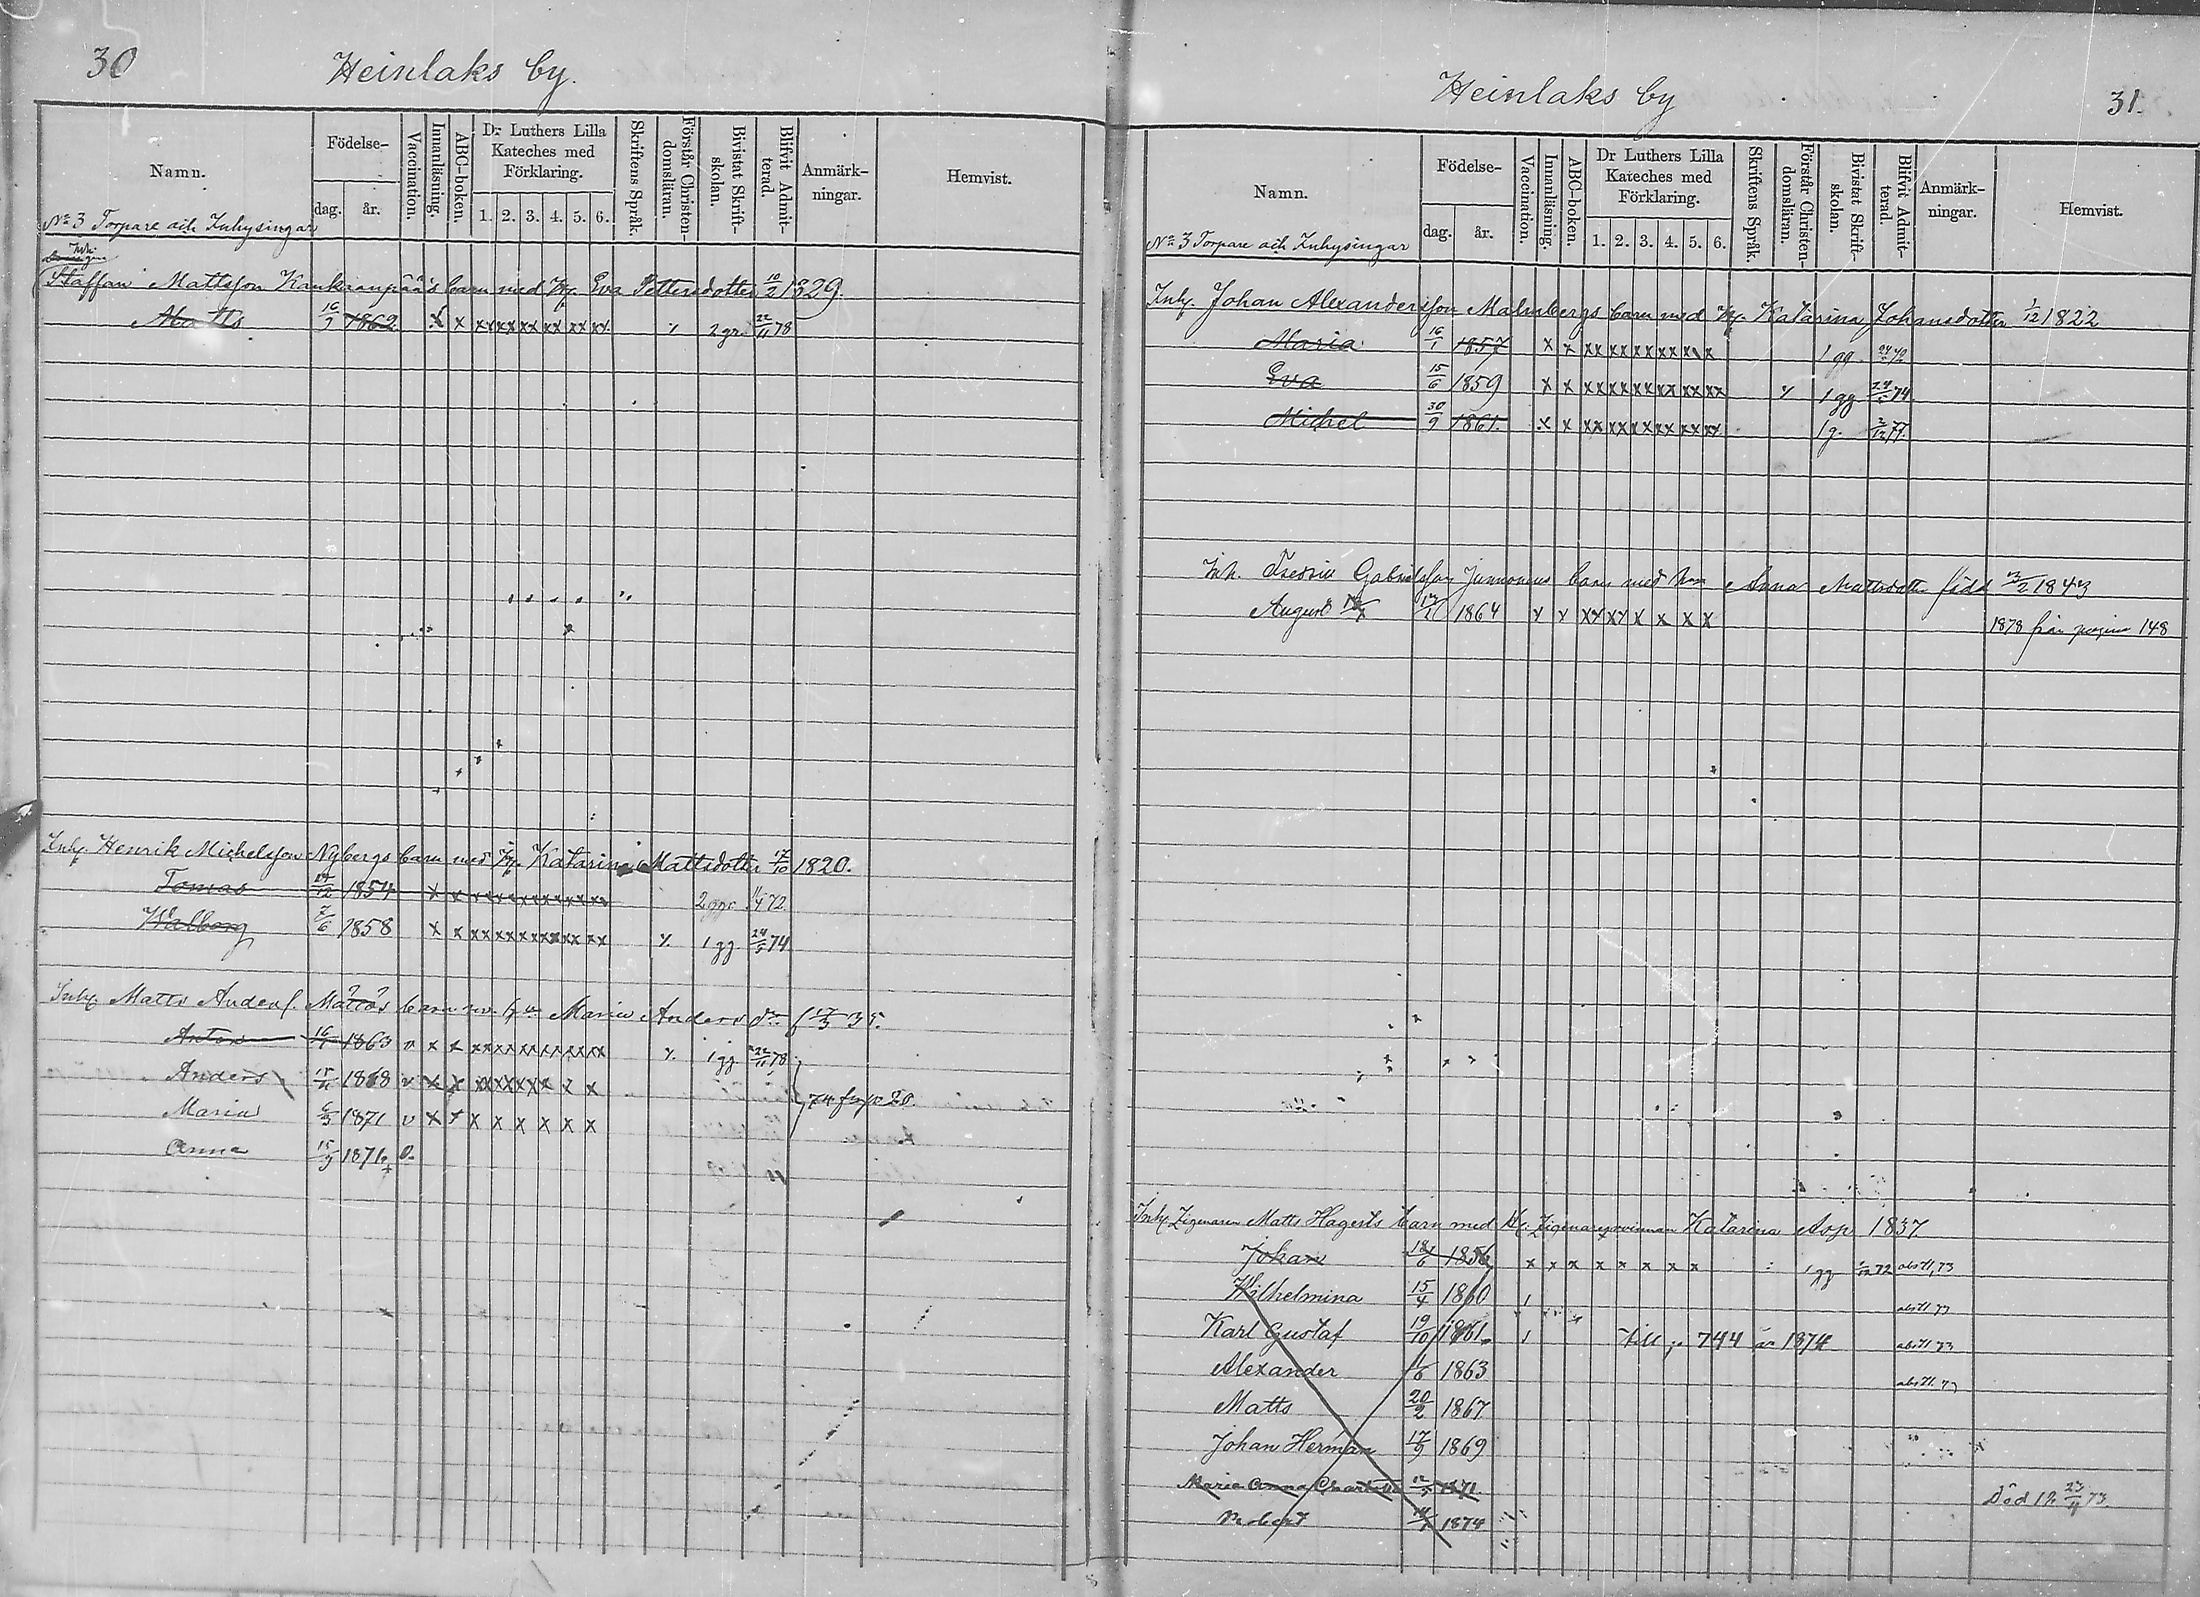 30
Heinlaks by.
Namn.
Födelse-
dag. år.
Vaccination.
Innanläsning.
ABC-boken.
Dr Luthers Lilla Kateches med Förklaring.
1. 2. 3. 4. 5. 6.
Skriftens Språk.
Förstår Christen-domsläran.
Bivistat Skrift-skolan.
Blifvit Admit-terad.
Anmärk-ningar.
Hemvist.
No 3 Torpare och Inhysingar
Inh.
Staffan Mattsson Kankaanpää's barn med Hu. Eva Pettersdotter 10/2 1829.
Matts 16/9 1862 x x xx xx xx xx xx xx 2 gr. 22/11 78
Inh. Henrik Michelsson Nybergs barn med Hu. Katarina Mattsdotter 17/10 1820.
Tomas 19/12 1854 x x xx xx xx xx xx xx 2 ggr. 1/4 72
Walborg 7/6 1858 x x xx xx xx xx xx xx 1 gg. 24/5 74
Inh. Matts Anders. Mattas barn m. h. Maria Anders dr f. 17/3 35.
Anton 16/1 1863 v x x xx xx xx xx xx xx 1 gg. 22/11 78
Anders 15/11 1868 v x x xx xx xx x x x
74 fr p. 20.
Maria 6/3 1871 v x x x x x x x x
Anna 15/9 1874 0.
Heinlaks by
31.
Namn.
Födelse-
dag. år.
Vaccination.
Innanläsning.
ABC-boken.
Dr Luthers Lilla Kateches med Förklaring.
1. 2. 3. 4. 5. 6.
Skriftens Språk.
Förstår Christen-domsläran.
Bivistat Skrift-skolan.
Blifvit Admit-terad.
Anmärk-ningar.
Hemvist.
No 3 Torpare och Inhysingar
Inh. Johan Alexandersson Malmbergs barn med Hu. Katarina Johansdotter 1/12 1822
Maria 16/1 1857 x x xx xx xx xx xx x 1 gg.
Eva 15/6 1859 x x xx xx xx xx xx xx 1 gg. 24/5 74
Michel 30/9 1861. x x xx xx xx xx xx xx 1 g. 2/12 77.
Inh. Fredric Gabrielsson Junnonens barn med hu Anna Mattsdotter född 1843
August 1864 x x xx xx x x x x 1878 från pagina 148
Inh. Zigenaren Matts Hagerts barn med H. Zigenareqvinnan Katarina Asp 1837
Johan 18/6 1856 x x x x x x x x x 1 gg 72 abs tl. 73
Wilhelmina 15/4 1860 1 abs tl 73
Karl Gustaf 19/10 1861. 1 till p. 744 år 1874 abs tl 73
Alexander 1863 abs tl. 73
Matts 20/2 1867
Johan Herman 17/9 1869
Maria Anna Charlotta 1871. Död 23/4 73.
Robert 1874